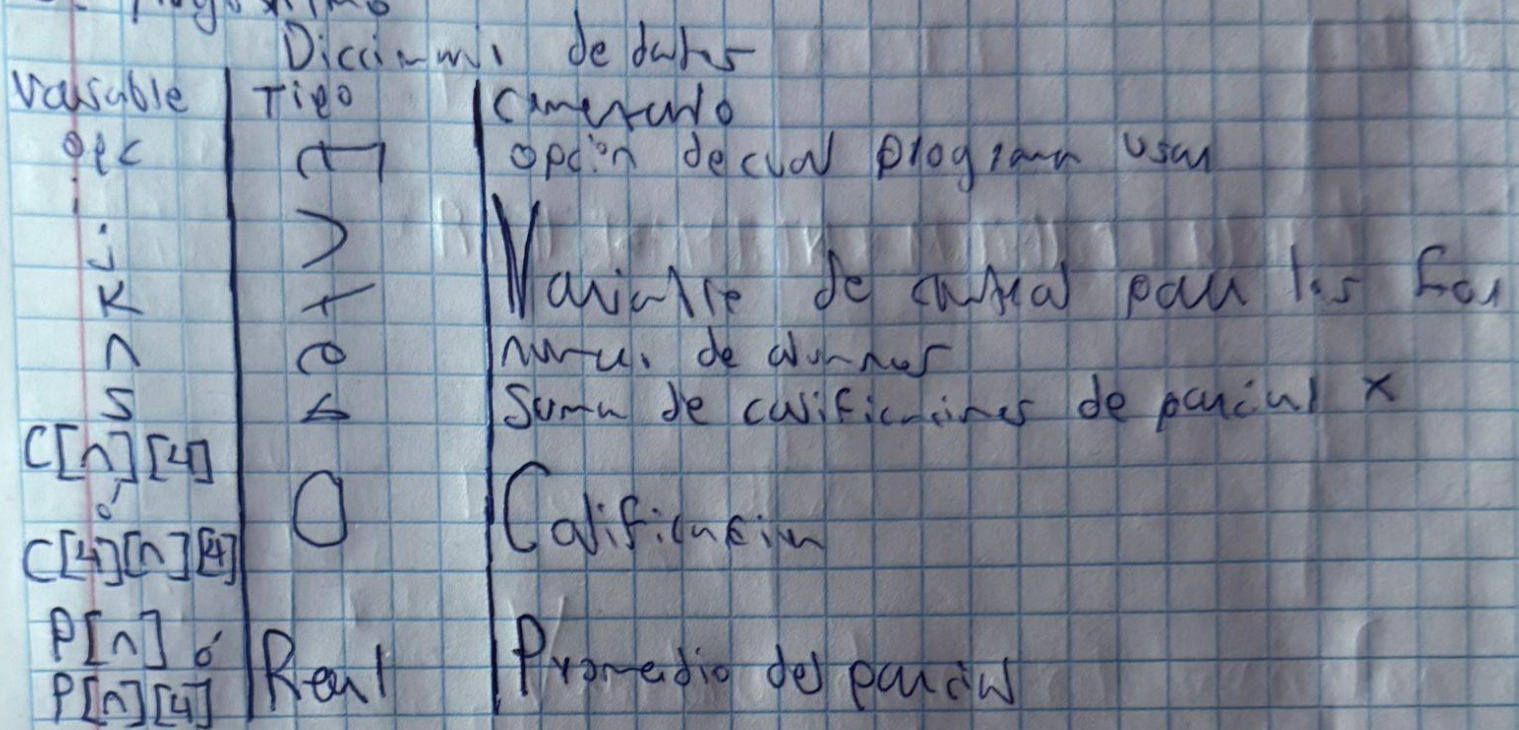 Diccionario de datos
Variable Tipo Comentario
opc opción de cual programa usar
i
j
K Variable de control para los for
n numero de alumnos
s Suma de calificaciones de parcial x
Entero
C[n][4]
ó
C[4][n][4] Calificación
P[n] ó
P[n][4] Real Promedio del parcial